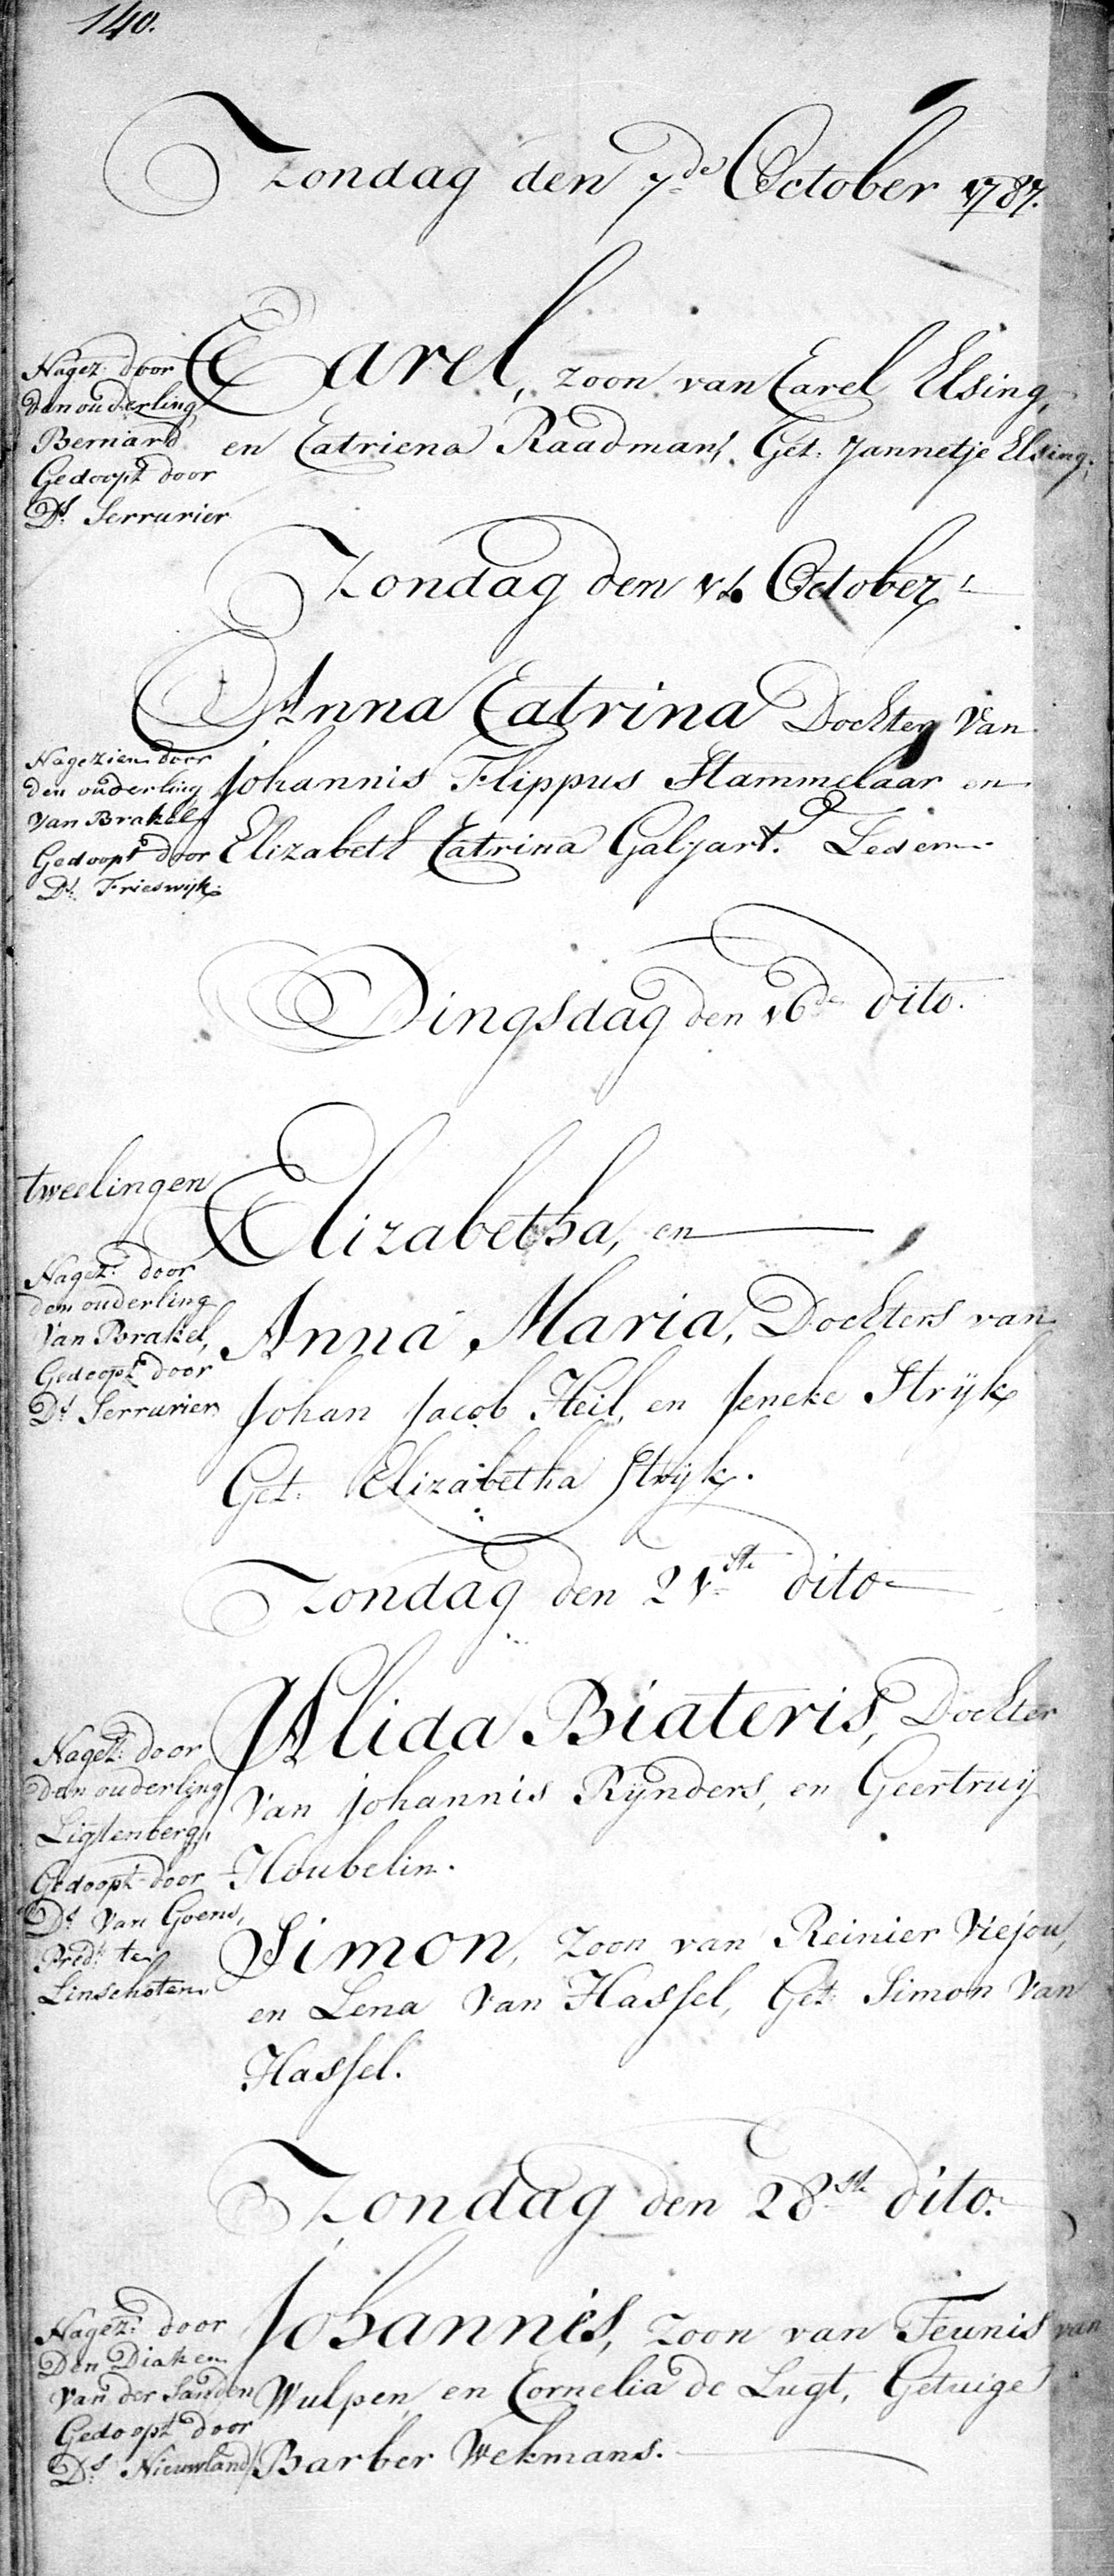 140.
Zondag den 7de October 1787.
Nagez: door
den ouderling
Bernard
Gedoopt door
Ds. Serrurier
Carel, zoon van Carel Elsing,
en Catriena Raadman, Get. Jannetje Elsing.
Zondag den 14 October
Nagezien door
den ouderling
van Brakel
Gedoopt door
Ds. Frieswijk.
Anna Catrina Dochter van
Johannis Flippus Stammelaar en
Elizabeth Catrina Galjart. Leden
Dingsdag den 16de dito.
tweelingen
Nagez: door
den ouderling
van Brakel,
Gedoopt door
Ds. Serrurier
Elizabetha, en
Anna Maria, Dochters van
Johan Jacob Heil, en Jeneke Strijk
Get. Elizabetha Strijk.
Zondag den 21ste dito
Nagez: door
den ouderling
Ligtenberg,
Gedoopt door
Ds. Van Goens,
Pred: te
Linschoten.
Alida Biateris, Dochter
van Johannis Rijnders, en Geertruij
Houbelin.
Simon, zoon van Reinier Viejou,
en Lena van Hassel, Get. Simon van
Hassel.
Zondag den 28ste dito.
Nagez: door
Den Diaken
van der Sanden
Gedoopt door
Ds. Nieuwland
Johannes, zoon van Teunis van
Wulpen, en Cornelia de Lugt, Getuige
Barber Wekmans.